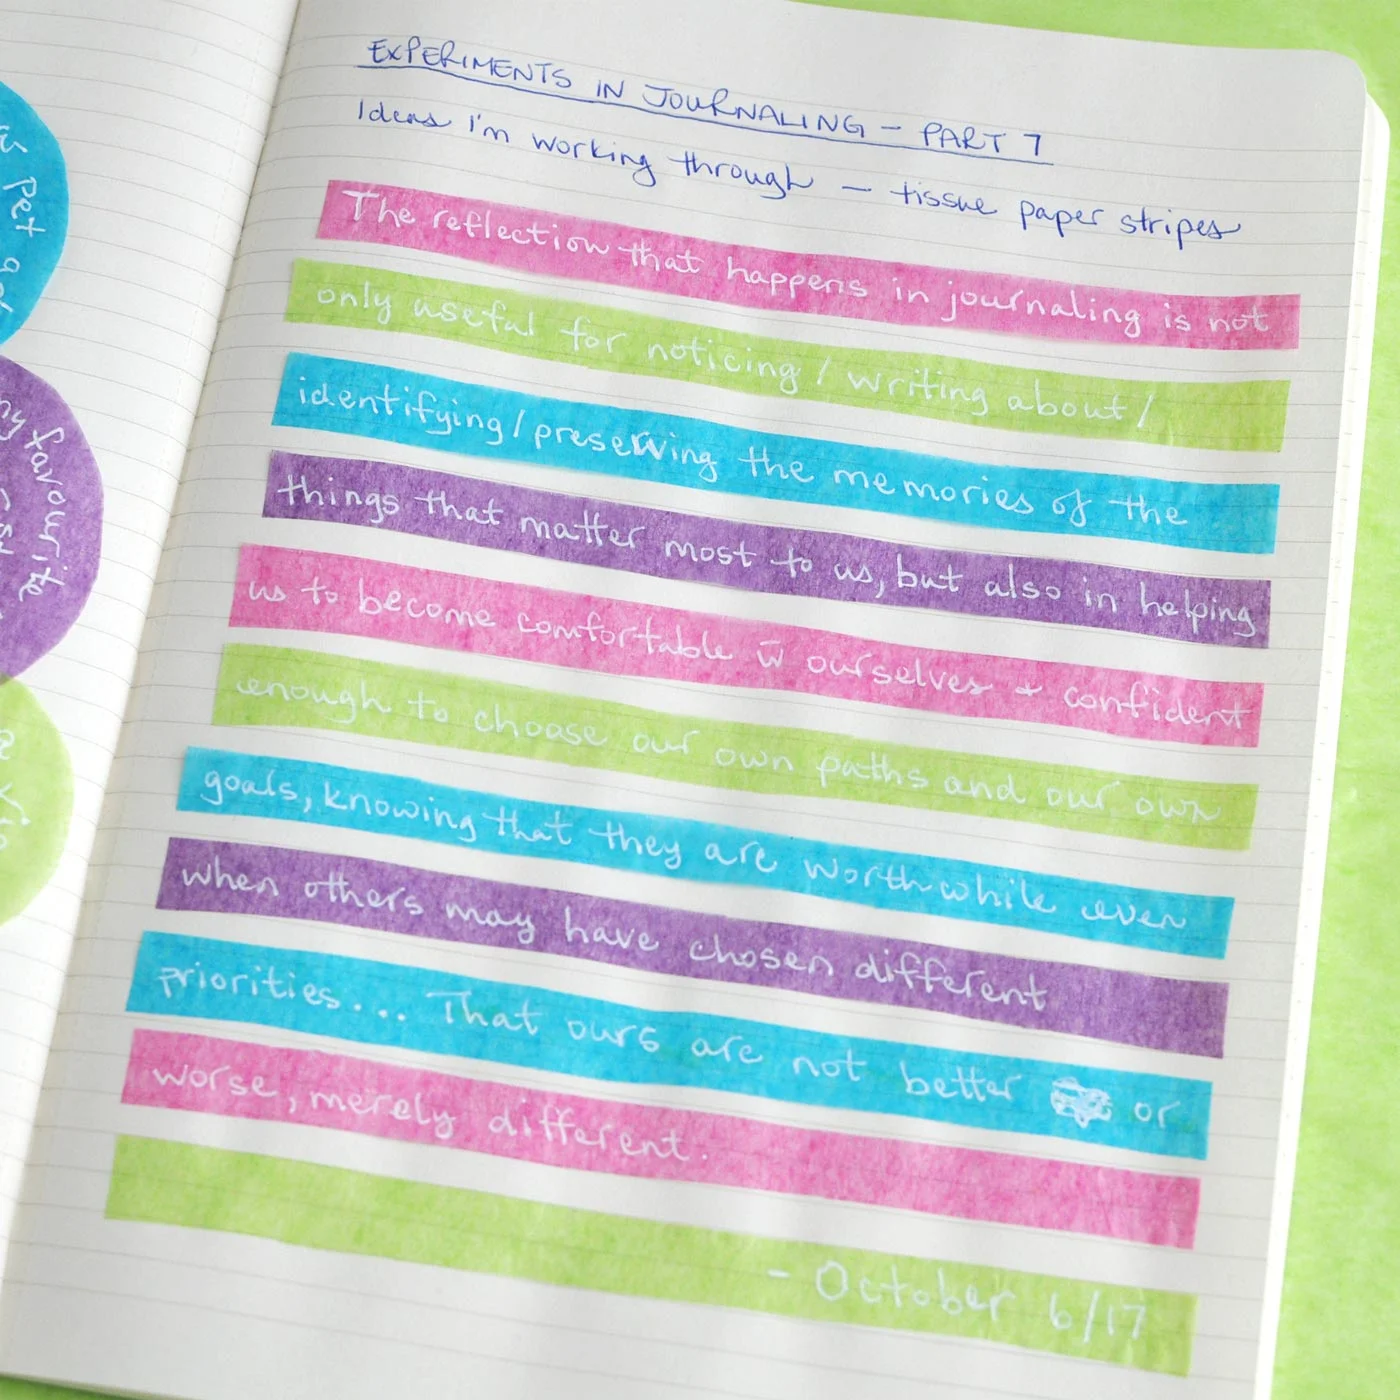 EXPERIMENTS IN JOURNALING – PART 7
Ideas I'm working through – tissue paper stripes
The reflection that happens in journaling is not
only useful for noticing / writing about /
identifying / preserving the memories of the
things that matter most to us, but also in helping
us to become comfortable w̄ ourselves + confident
enough to choose our own paths and our own
goals, knowing that they are worthwhile even
when others may have chosen different
priorities... That ours are not better or
worse, merely different.
- October 6/17
Pet
favourite